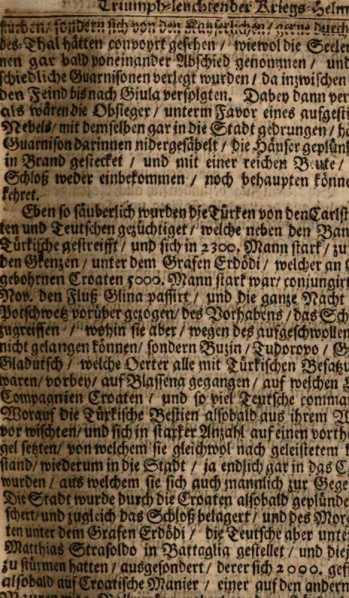 Triumph-leuchtender Kriegs-Helm
sondern sich von den Kayserlichen / gerne durch
des Thal hätten convoyrt gesehen / wiewol die Seelen
nen gar bald voneinander Abschied genommen / und
schiedliche Guarnisonen verlegt wurden / da inzwischen
den Feind bis nach Giula verfolgten. Dabey dann ver
als wären die Obsieger / unterm Favor eines aufgesti
Nebels / mit demselben gar in die Stadt gedrungen / hä
Guarnison darinnen nidergesäbelt / die Häuser geplünd
in Brand gestecket / und mit einer reichen Beute /
Schloß weder einbekommen / noch behaupten könne
kehret.
Eben so säuberlich wurden die Türken von den Carlst
ten und Teutschen gezüchtiget / welche neben den Ban
Türkische gestreifft / und sich in 2300. Mann stark / zu
den Grenzen / unter dem Grafen Erdödi / welcher an
gebohrnen Croaten 5000. Mann stark war / conjungirt
Nov. den Fluß Glina passirt / und die ganze Nacht
Potschwetz vorüber gezogen / des Vorhabens / das Sch
zugreiffen / wohin sie aber / wegen des aufgeschwollen
nicht gelangen können / sondern Buzin / Tudorovo / G
Gladutsch / welche Oerter alle mit Türkischen Besatzu
waren / vorbey / auf Blassena gegangen / auf welchen
Compagnien Croaten / und so viel Teutsche comman
Worauf die Türkische Bestien alsobald aus ihrem
vor wischten / und sich in starker Anzahl auf einen vorth
gel setzten / von welchem sie gleichwol nach geleistetem
stand / wiederum in die Stadt / ja endlich gar in das
wurden / aus welchem sie sich auch männlich zur Gege
Die Stadt wurde durch die Croaten alsobald geplünde
schert / und zugleich das Schloß belagert / und des Mor
ten unter dem Grafen Erdödi / die Teutsche aber unte
Matthias Strasoldo in Battaglia gestellet / und die
zu stürmen hatten / ausgesondert / derer sich 2000. gef
alsobald auf Croatische Manier / einer auf den andern